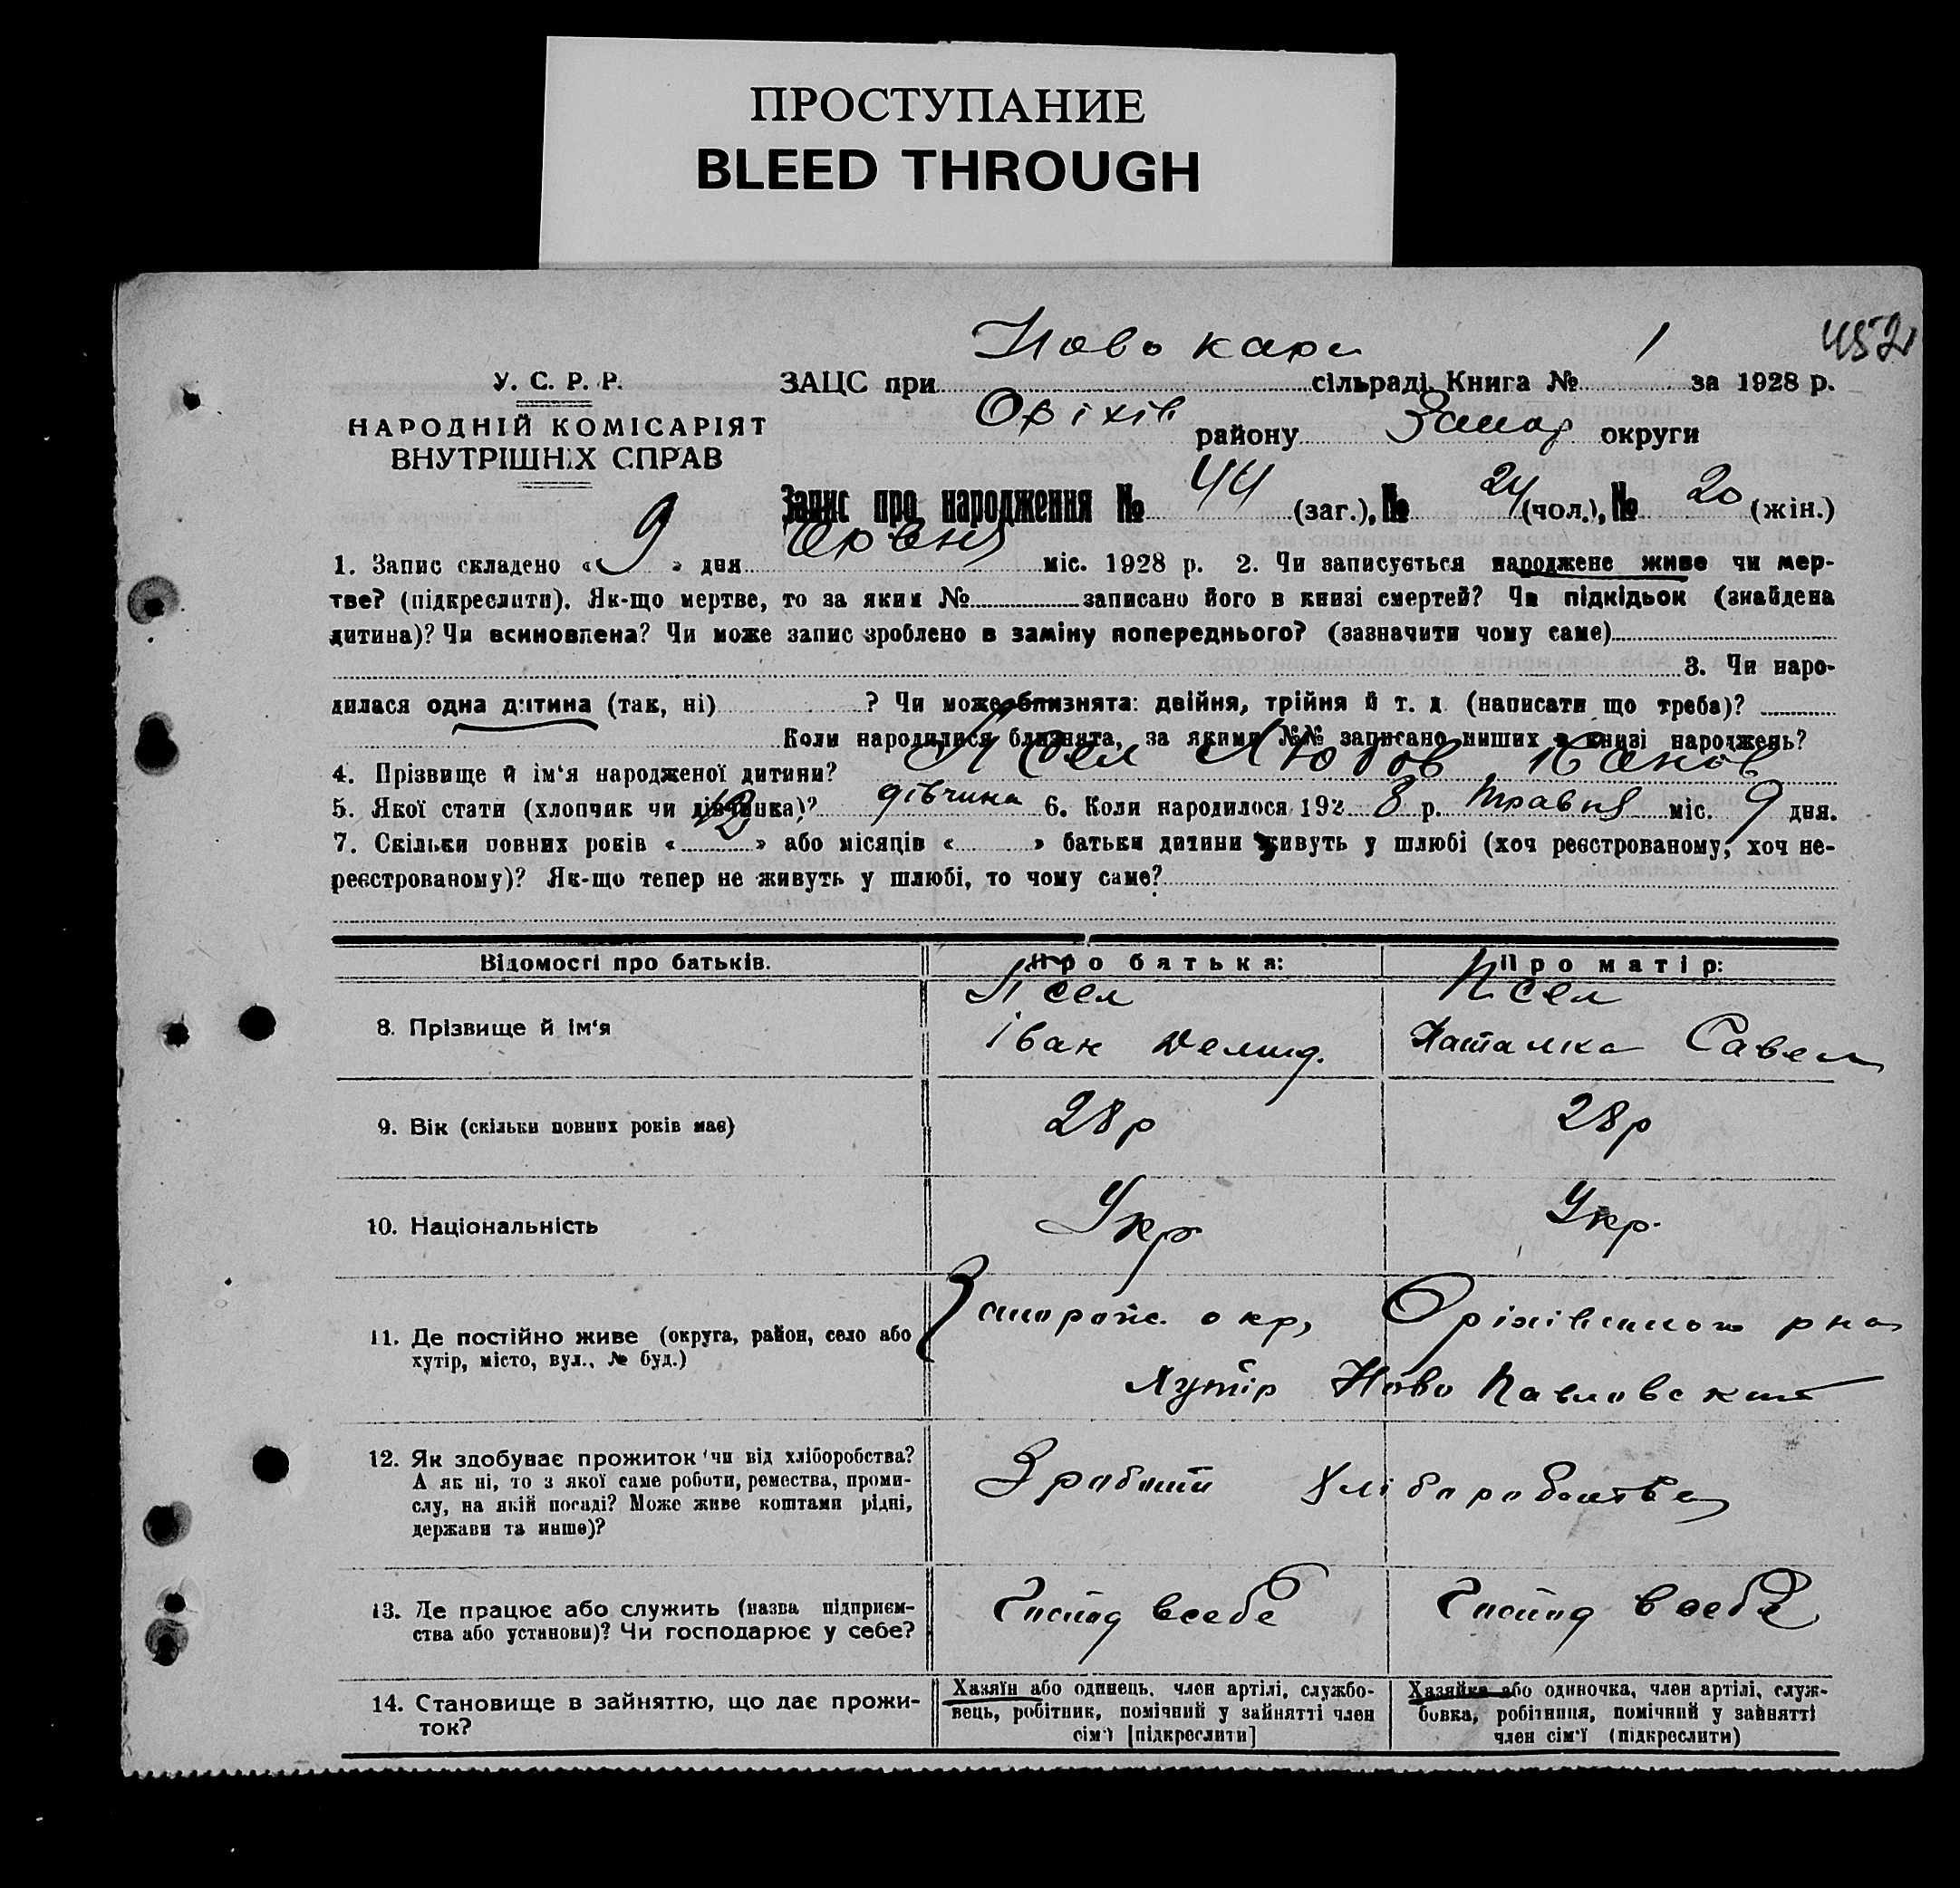 ПРОСТУПАНИЕ
BLEED THROUGH
452
У. С. Р. Р.
НАРОДНІЙ КОМІСАРІЯТ
ВНУТРІШНІХ СПРАВ
ЗАЦС при Ново кари сільраді. Книга № 1 за 1928 р.
Оріхів району Запор округи
Запис про народження № 44 (заг.), № 24 (чол.), № 20 (жін.)
1. Запис складено « 9 » дня червня міс. 1928 р. 2. Чи записується народжене живе чи мер-
тве? (підкреслити). Як-що мертве, то за яким № записано його в книзі смертей? Чи підкідьок (знайдена
дитина)? Чи всиновлена? Чи може запис зроблено в заміну попереднього? (зазначити чому саме)
3. Чи наро-
дилася одна дитина (так, ні) ? Чи може близнята: двійня, трійня й т. д. (написати що треба)?
Коли народилися близнята, за якими №№ записано инших в книзі народжень?
4. Прізвище й ім'я народженої дитини? Псел
5. Якої стати (хлопчик чи дівчинка)? дівчина 6. Коли народилося 192 8 р. травня міс. 9 дня.
7. Скільки повних років « » або місяців « » батьки дитини живуть у шлюбі (хоч реєстрованому, хоч не-
реєстрованому)? Як-що тепер не живуть у шлюбі, то чому саме?
Відомості про батьків. Про батька: Про матір:
Псел Псел
8. Прізвище й ім'я
Іван Демид. Наталка Савел
9. Вік (скільки повних років має) 28 р 28 р
10. Національність Укр Укр.
Запорож. окр, Оріхівського рна
11. Де постійно живе (округа, район, село або
хутір, місто, вул., № буд.)
Хутір Ново Павловский
12. Як здобуває прожиток чи від хліборобства?
А як ні, то з якої саме роботи, ремества, проми-
слу, на якій посаді? Може живе коштами рідні,
держави та инше)?
З работи хліборобства
13. Де працює або служить (назва підприєм-
ства або установи)? Чи господарює у себе?
Господ всебе Господ в себе
14. Становище в зайняттю, що дає прожи-
ток?
Хазяїн або одинець, член артілі, службо-
вець, робітник, помічний у зайнятті член
сім'ї [підкреслити]
Хазяйка або одиночка, член артілі, служ-
бовка, робітниця, помічний у зайнятті
член сім'ї (підкреслити)